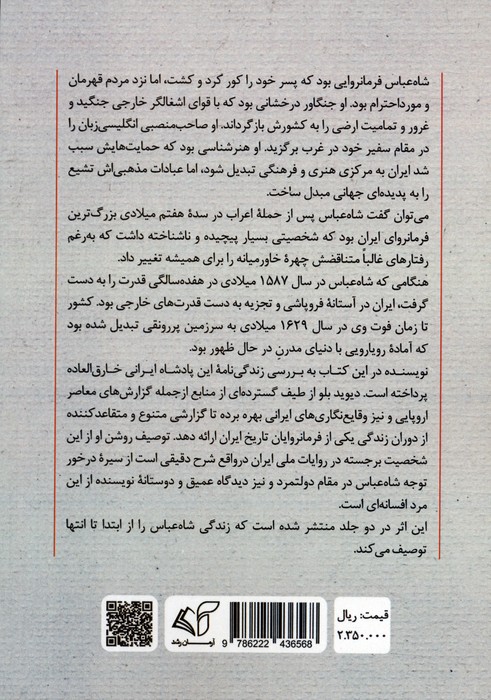 شاه‌عباس فرمانروایی بود که پسر خود را کور کرد و کشت، اما نزد مردم قهرمان
و مورداحترام بود. او جنگاور درخشانی بود که با قوای اشغالگر خارجی جنگید و
غرور و تمامیت ارضی را به کشورش بازگرداند. او صاحب‌منصبی انگلیسی‌زبان را
در مقام سفیر خود در غرب برگزید. او هنرشناسی بود که حمایت‌هایش سبب
شد ایران به مرکزی هنری و فرهنگی تبدیل شود، اما عبادات مذهبی‌اش تشیع
را به پدیده‌ای جهانی مبدل ساخت.
می‌توان گفت شاه‌عباس پس از حملهٔ اعراب در سدهٔ هفتم میلادی بزرگ‌ترین
فرمانروای ایران بود که شخصیتی بسیار پیچیده و ناشناخته داشت که به‌رغم
رفتارهای غالباً متناقضش چهرهٔ خاورمیانه را برای همیشه تغییر داد.
هنگامی که شاه‌عباس در سال ۱۵۸۷ میلادی در هفده‌سالگی قدرت را به دست
گرفت، ایران در آستانهٔ فروپاشی و تجزیه به دست قدرت‌های خارجی بود. کشور
تا زمان فوت وی در سال ۱۶۲۹ میلادی به سرزمین پررونقی تبدیل شده بود
که آمادهٔ رویارویی با دنیای مدرنِ در حال ظهور بود.
نویسنده در این کتاب به بررسی زندگی‌نامهٔ این پادشاه ایرانی خارق‌العاده
پرداخته است. دیوید بلو از طیف گسترده‌ای از منابع ازجمله گزارش‌های معاصر
اروپایی و نیز وقایع‌نگاری‌های ایرانی بهره برده تا گزارشی متنوع و متقاعدکننده
از دوران زندگی یکی از فرمانروایان تاریخ ایران ارائه دهد. توصیف روشن او از این
شخصیت برجسته در روایات ملی ایران درواقع شرح دقیقی است از سیرهٔ درخور
توجه شاه‌عباس در مقام دولتمرد و نیز دیدگاه عمیق و دوستانهٔ نویسنده از این
مرد افسانه‌ای است.
این اثر در دو جلد منتشر شده است که زندگی شاه‌عباس را از ابتدا تا انتها
توصیف می‌کند.
قیمت: ریال
۲.۳۵۰.۰۰۰
9 786222 436568
آرمـان رشد